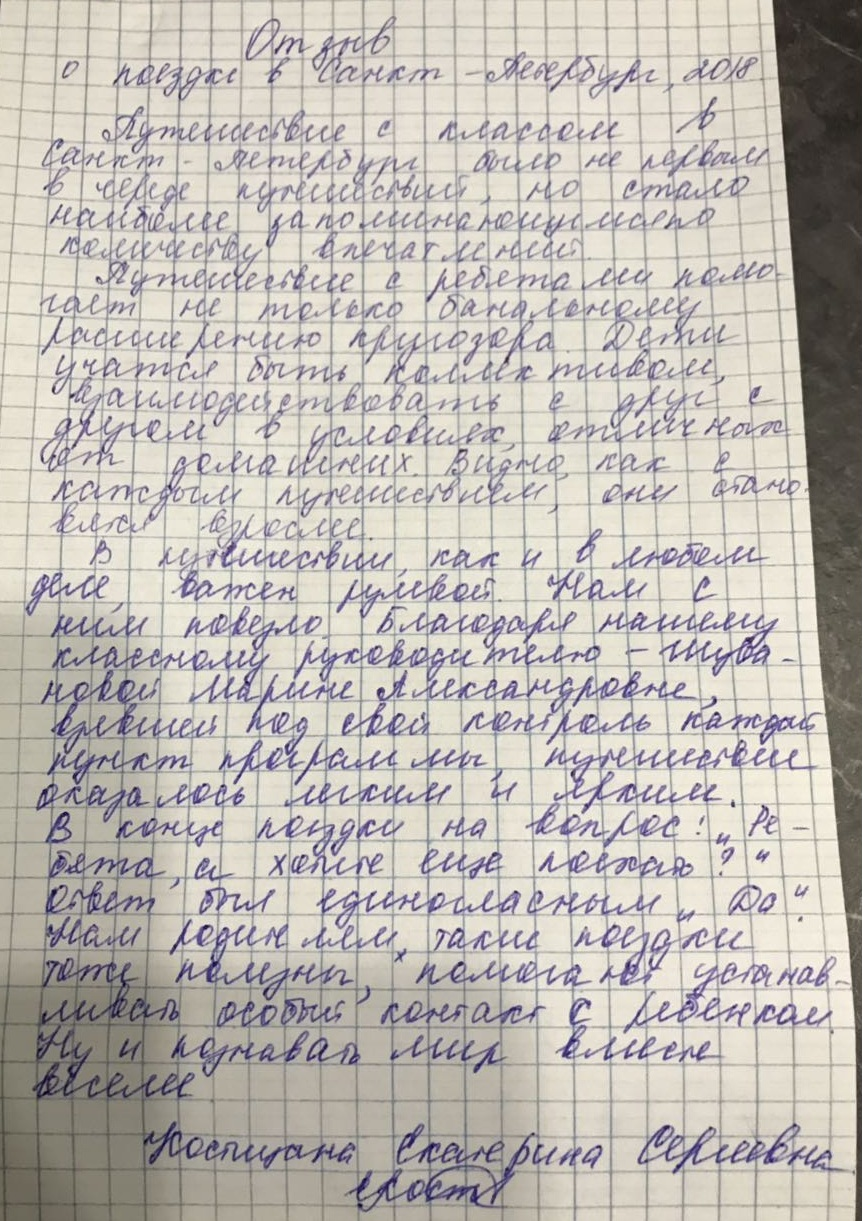 Отзыв
о поездке в Санкт-Петербург, 2018
Путешествие с классом в
Санкт-Петербург было не первым
в череде путешествий, но стало
наиболее запоминающимся по
количеству впечатлений.
Путешествие с ребятами помо-
гает не только банальному
расширению кругозора. Дети
учатся быть коллективом,
взаимодействовать с друг с
другом в условиях, отличных
от домашних. Видно, как с
каждым путешествием, они стано-
вятся взрослее.
В путешествии, как и в любом
деле, важен рулевой. Нам с
ним повезло. Благодаря нашему
классному руководителю -
новой Марине Александровне,
взявшей под свой контроль каждый
пункт программы, путешествие
оказалось легким и ярким.
В конце поездки на вопрос: „Ре-
бята, а хотите еще поехать?“
ответ был единогласным „Да“.
Нам родителям, такие поездки
тоже полезны, помогают устанав-
ливать особый контакт с ребенком.
Ну и познавать мир вместе
веселее
Екатерина Сергеевна